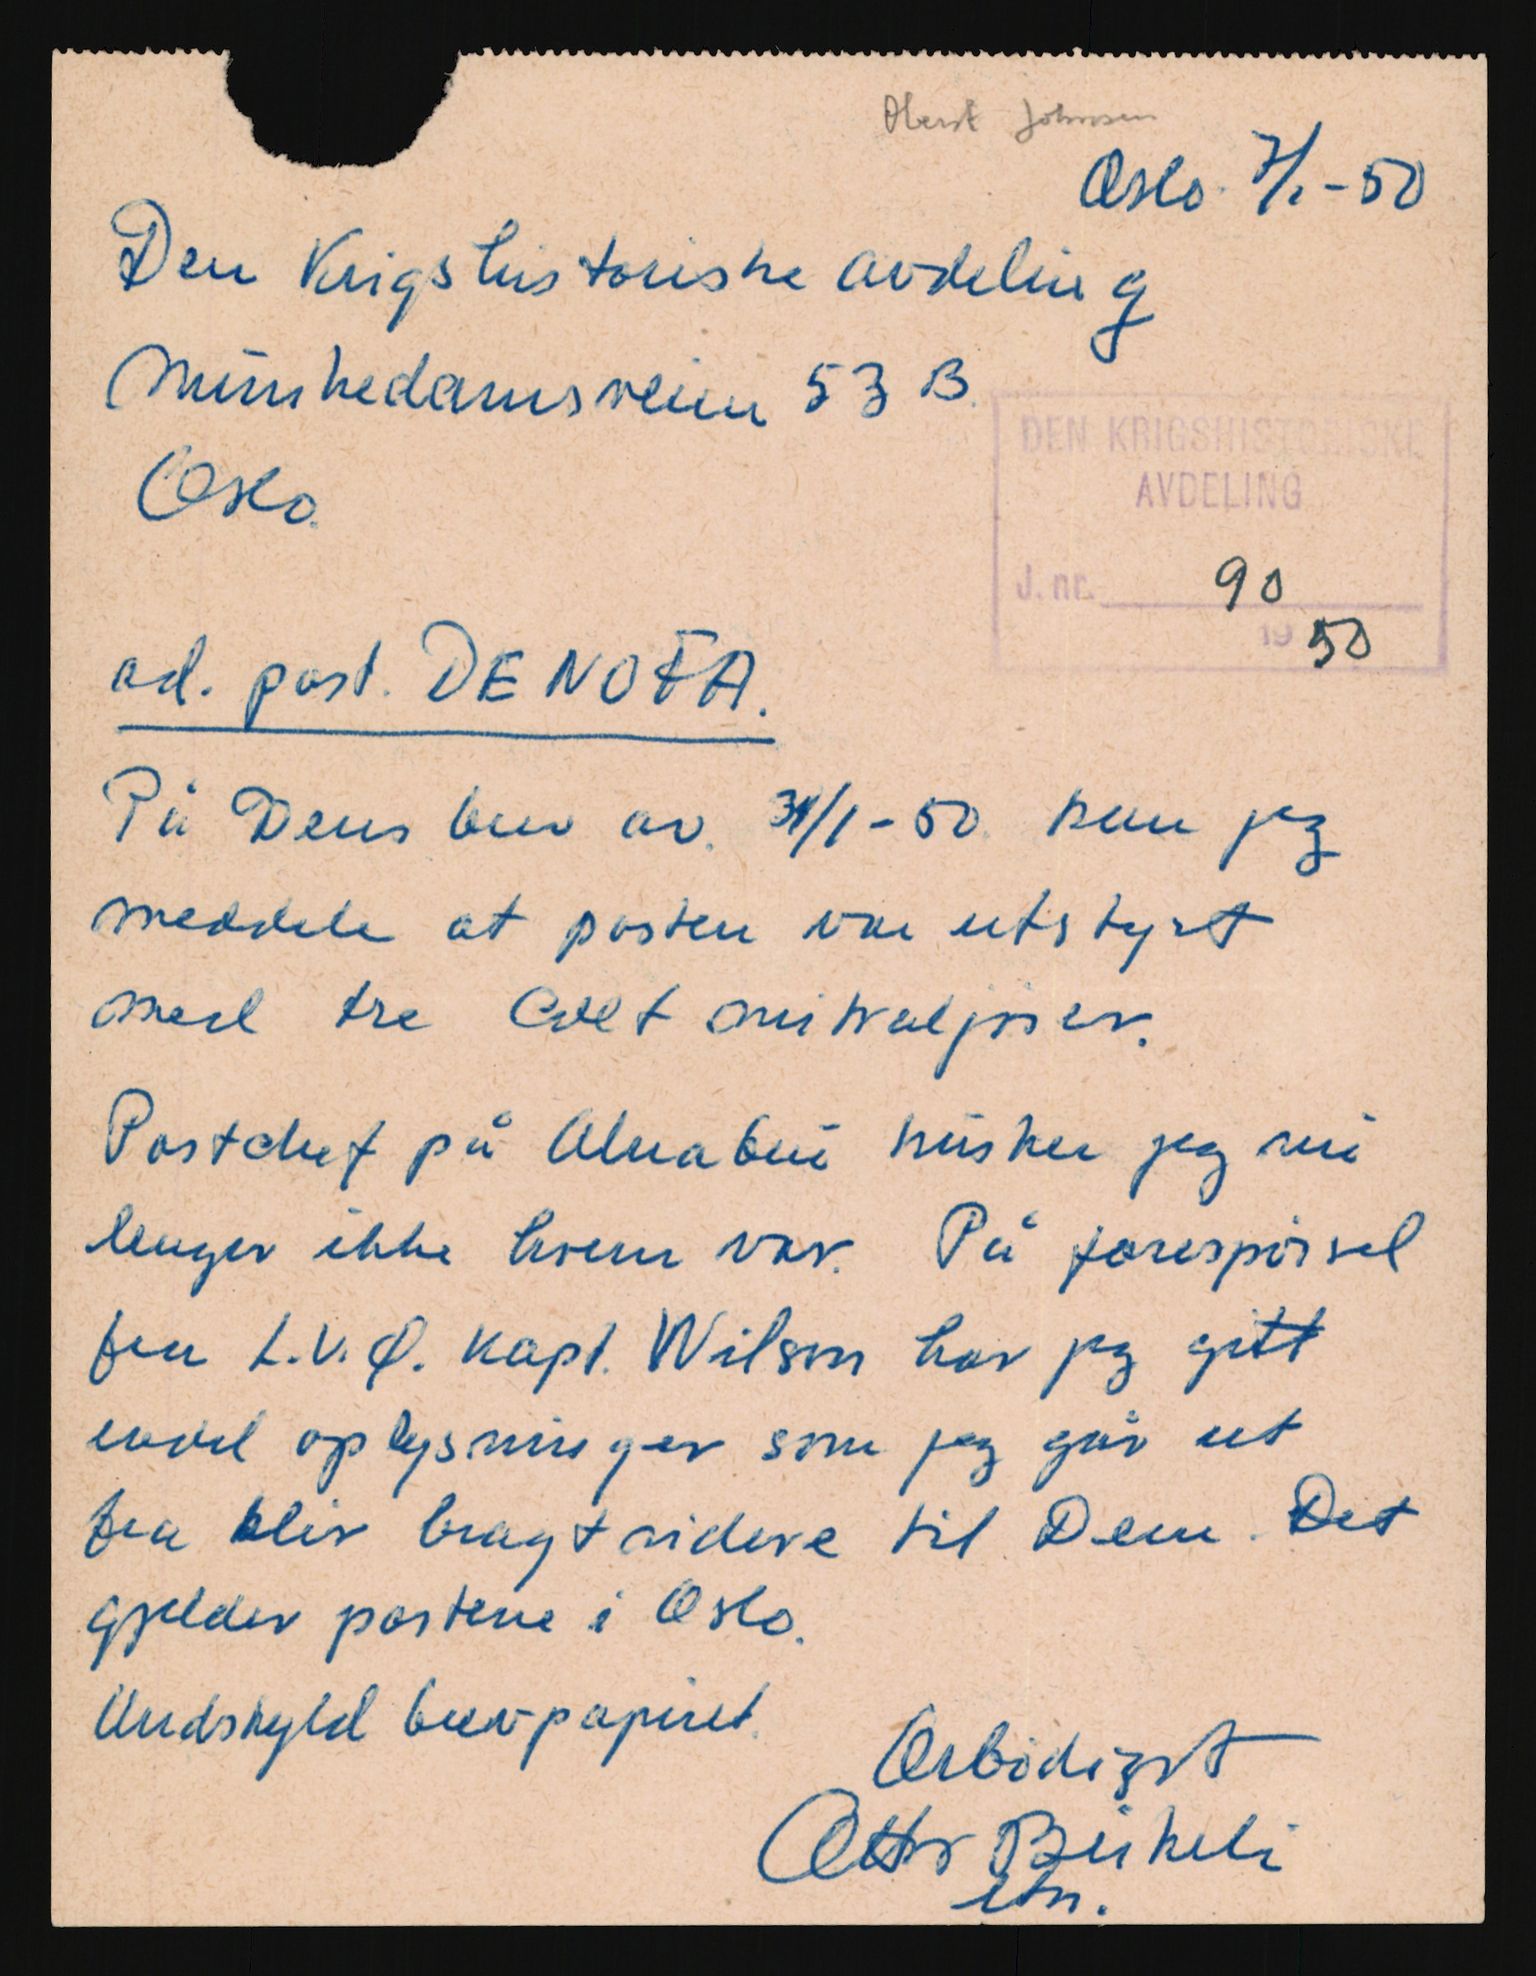 Oberst Johnsen
Oslo 7/2-50
Den Krigshistoriske avdeling
Munkedamsveien 53 B.
Oslo.
DEN KRIGSHISTORISKE
AVDELING
J. nr. 90
1950
ad. post. DENOFA.
På Deres brev av. 31/1-50 kan jeg
meddele at posten var utstyrt
med tre Colt mitraljøser.
Postchef på Alnabru husker jeg nu
lenger ikke hvem var. På forespørsel
fra L.V.Ø. Kapt. Wilson har jeg gitt
endel oplysninger som jeg går ut
fra blir bragt videre til Dem. Det
gjelder postene i Oslo.
Undskyld brevpapiret.
Ærbødigst
Otto Birkeli
ltn.